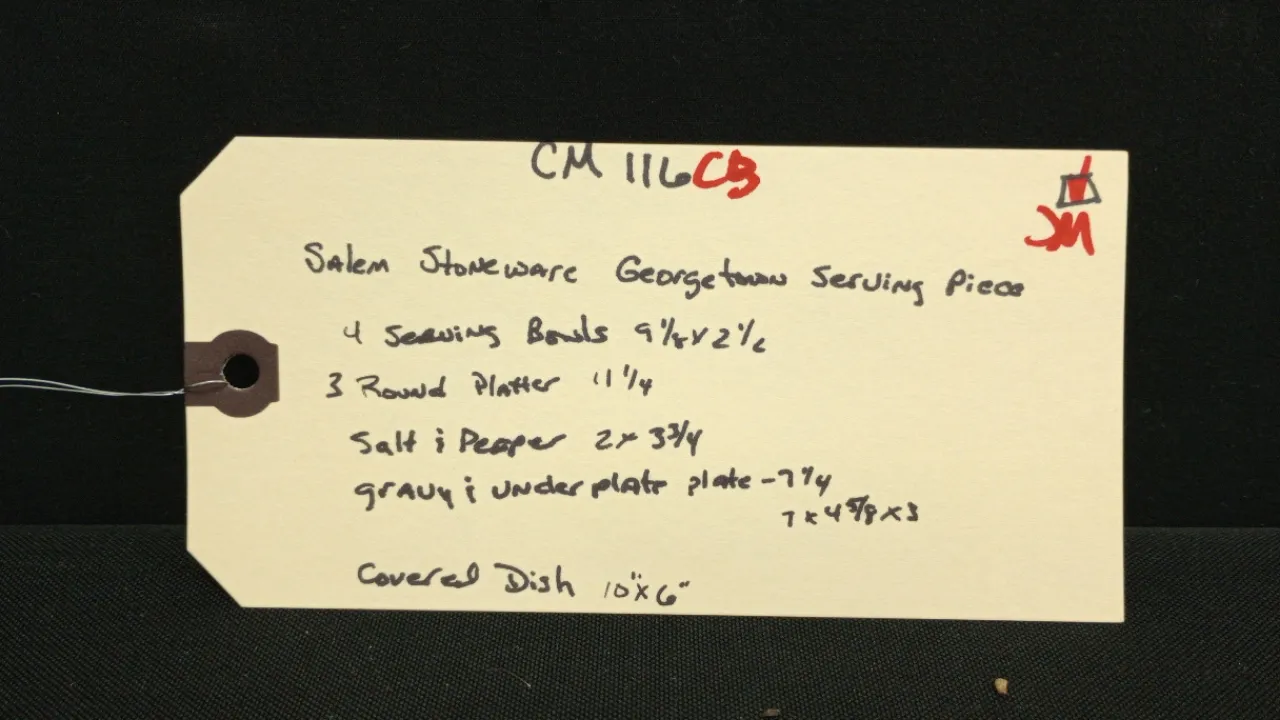 CM 116 CB
JM
Salem Stoneware Georgetown Serving Piece
4 Serving Bowls 9 1/8 x 2 1/2
3 Round Platter 11 1/4
Salt & Pepper 2 x 3 3/4
gravy & underplate plate - 7 1/4
7 x 4 5/8 x 3
Covered Dish 10" x 6"